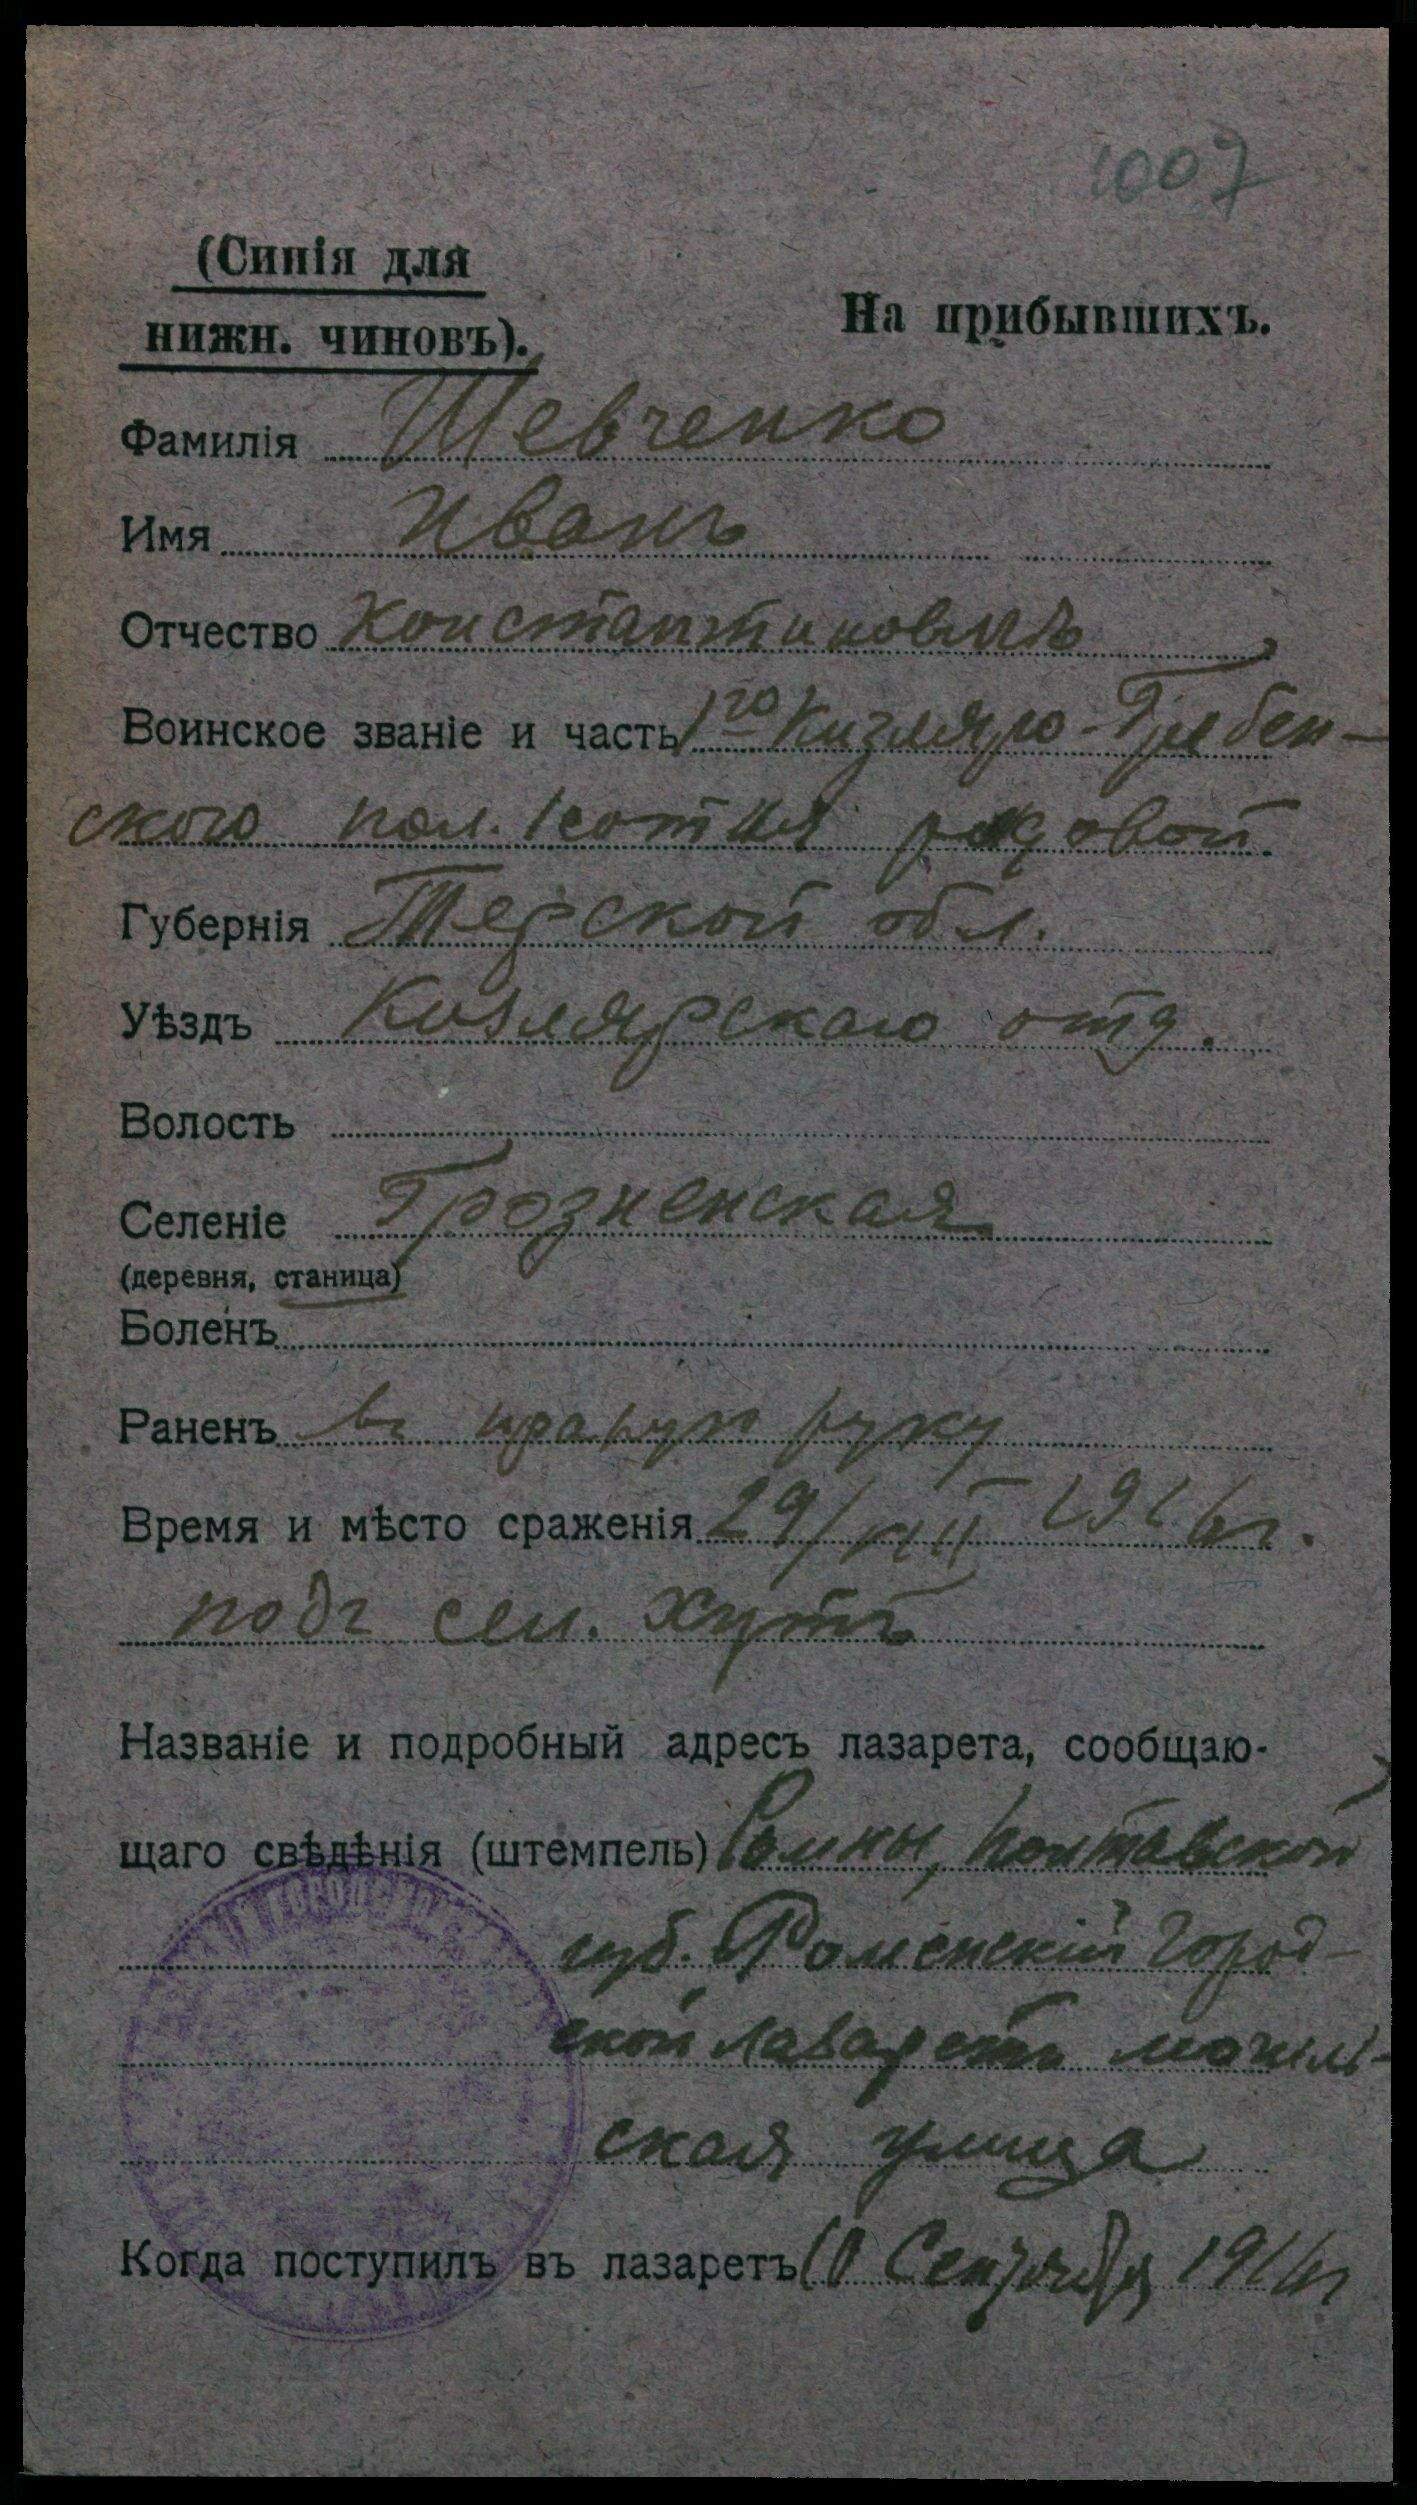 1007
(Синія для
нижн. чиновъ).
На прибывшихъ.
Фамилія Шевченко
Имя Иванъ
Отчество Константиновичъ
Воинское званіе и часть 1го Кизляро-Гребен-
ского пол. 1 сотня рядовой
Губернія Терской обл.
Уѣздъ Кизлярскаго отд.
Волость
Селеніе Грозненская
(деревня, станица)
Боленъ
Раненъ въ правую руку
Время и мѣсто сраженія 29/VIII 1914 г.
подъ сел.
Названіе и подробный адресъ лазарета, сообщаю-
щаго свѣдѣнія (штемпель) Ромны, Полтавской
губ. Роменскій Город-
ской лазаретъ
ская улица
Когда поступилъ въ лазаретъ 10 Сентября 1914 г